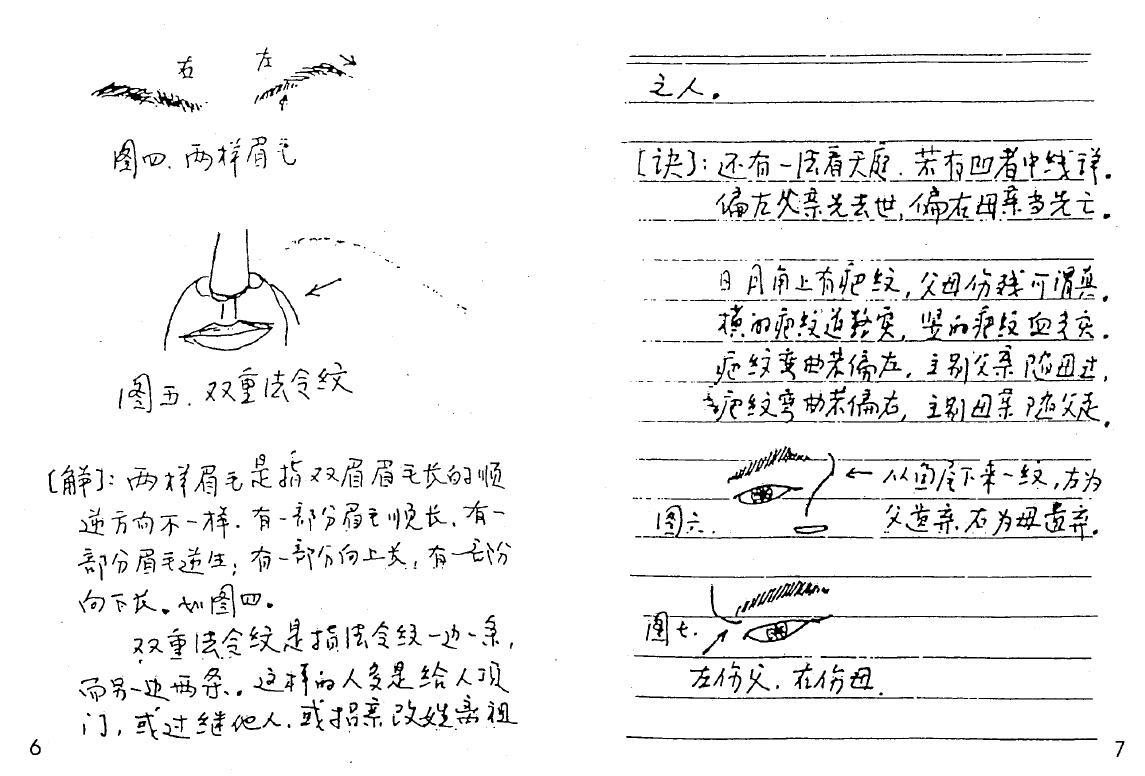 右 左
图四、两样眉毛
图五、双重法令纹
[解]：两样眉毛是指双眉眉毛长的顺
逆方向不一样，有一部分眉毛顺长，有一
部分眉毛逆生；有一部分向上长，有一部份
向下长。如图四。
双重法令纹是指法令纹一边一条，
而另一边两条。这样的人多是给人顶
门，或过继他人，或招亲改姓离祖
6
之人。
[诀]：还有一法看天庭，若有凹者中线详。
偏左父亲先去世，偏右母亲当先亡。
日月角上有疤纹，父母伤残可谓真。
横的疤纹道路灾，竖的疤纹血光灾。
疤纹弯曲若偏左，主别父亲随母过，
疤纹弯曲若偏右，主别母亲随父走。
从鱼尾下来一纹，左为
父遗弃，右为母遗弃。
图六、
图七、
左伤父，右伤母。
7